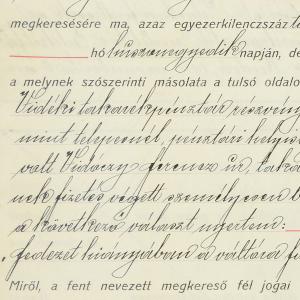 megkeresésére ma, azaz egyezerkilenczszáz
hó huszonnegyedik napján, dé
a melynek szószerinti másolata a tulsó oldalo
Vidéki takarékpénztár részvény
mint telepesnél, pénztári helyisé
volt Vidóczy Ferencz úr, taká
nek fizetés végett személyesen b
a következő választ nyertem:
fedezet hiányában a váltóra fi
Miről, a fent nevezett megkereső fél jogai